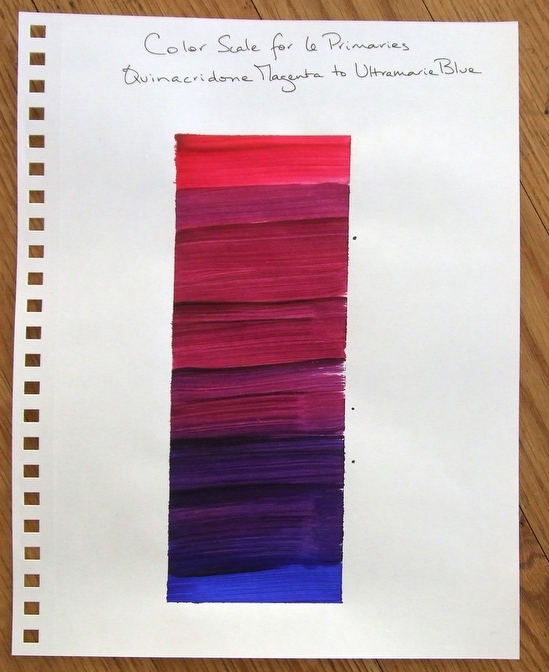 Color Scale for 6 Primaries
Quinacridone Magenta to Ultramarie Blue